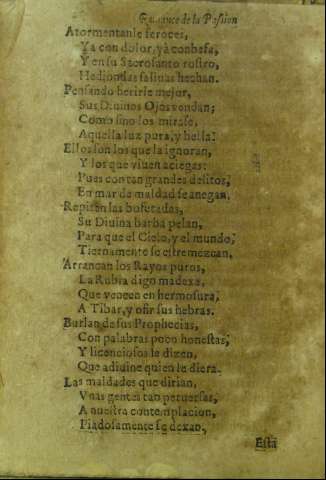 Romance de la Passion
Atormentanle feroces,
Ya con dolor, ya con befa,
Y en su Sacrosanto rostro,
Hediondas salinas hechan.
Pensando herirle mejor,
Sus Diuinos Ojos vendan;
Como sino los mirase,
Aquella luz pura, y bella!
Ellos son los que la ignoran,
Y los que viuen aciegas:
Pues con tan grandes delitos,
En mar de maldad se anegan.
Repiten las bofetadas,
Su Diuina barba pelan,
Para que el Cielo, y el mundo,
Tiernamente se estremezcan,
Arrancan los Rayos puros,
La Rubia digo madexa,
Que vencen en hermosura,
A Tibar, y ofir sus hebras.
Burlan de sus Prophecias,
Con palabras poco honestas,
Y licenciosos le dizen,
Que adiuine quien le diera.
Las maldades que dirian,
Vnas gentes tan peruersas,
A nuestra contemplacion,
Piadosamente se dexan,
Esta